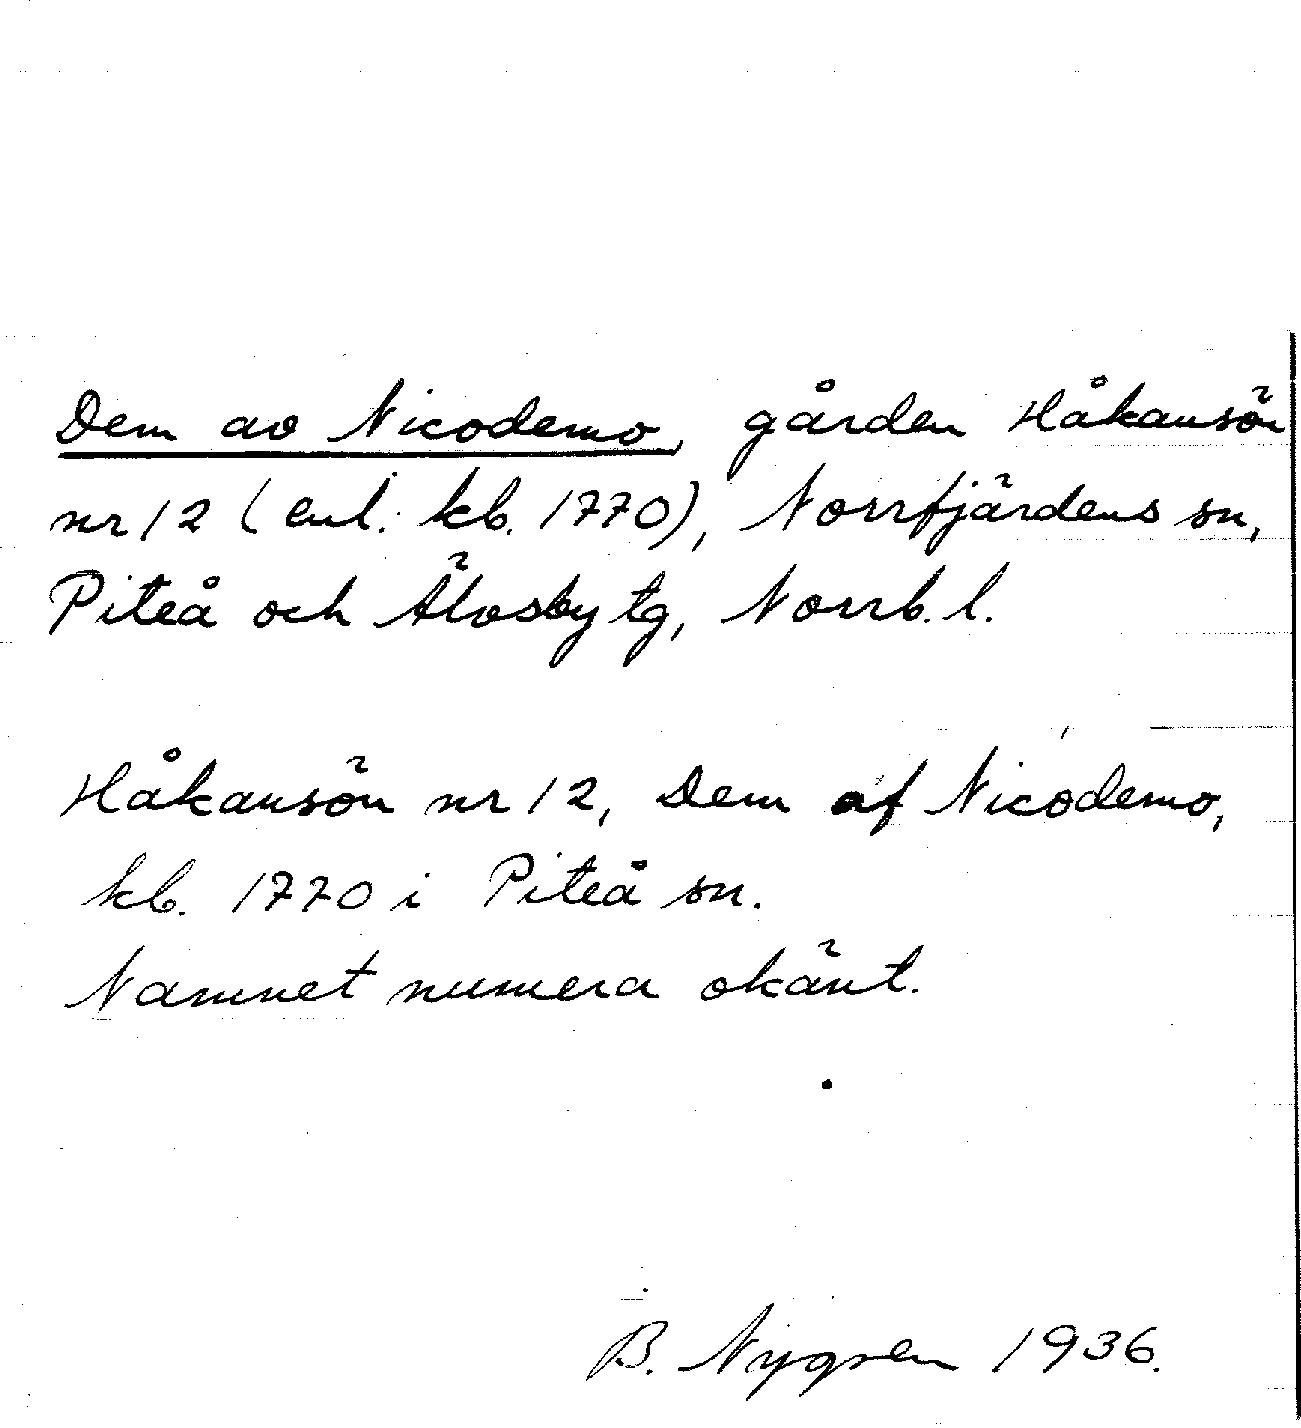 Dem av Nicodemo, gården Håkansön
nr 12 (enl. kb. 1770), Norrfjärdens sn,
Piteå och Älvsby tg, Norrb. l.
Håkansön nr 12, Dem af Nicodemo,
kb. 1770 i Piteå sn.
Namnet numera okänt.
B. Nygren 1936.